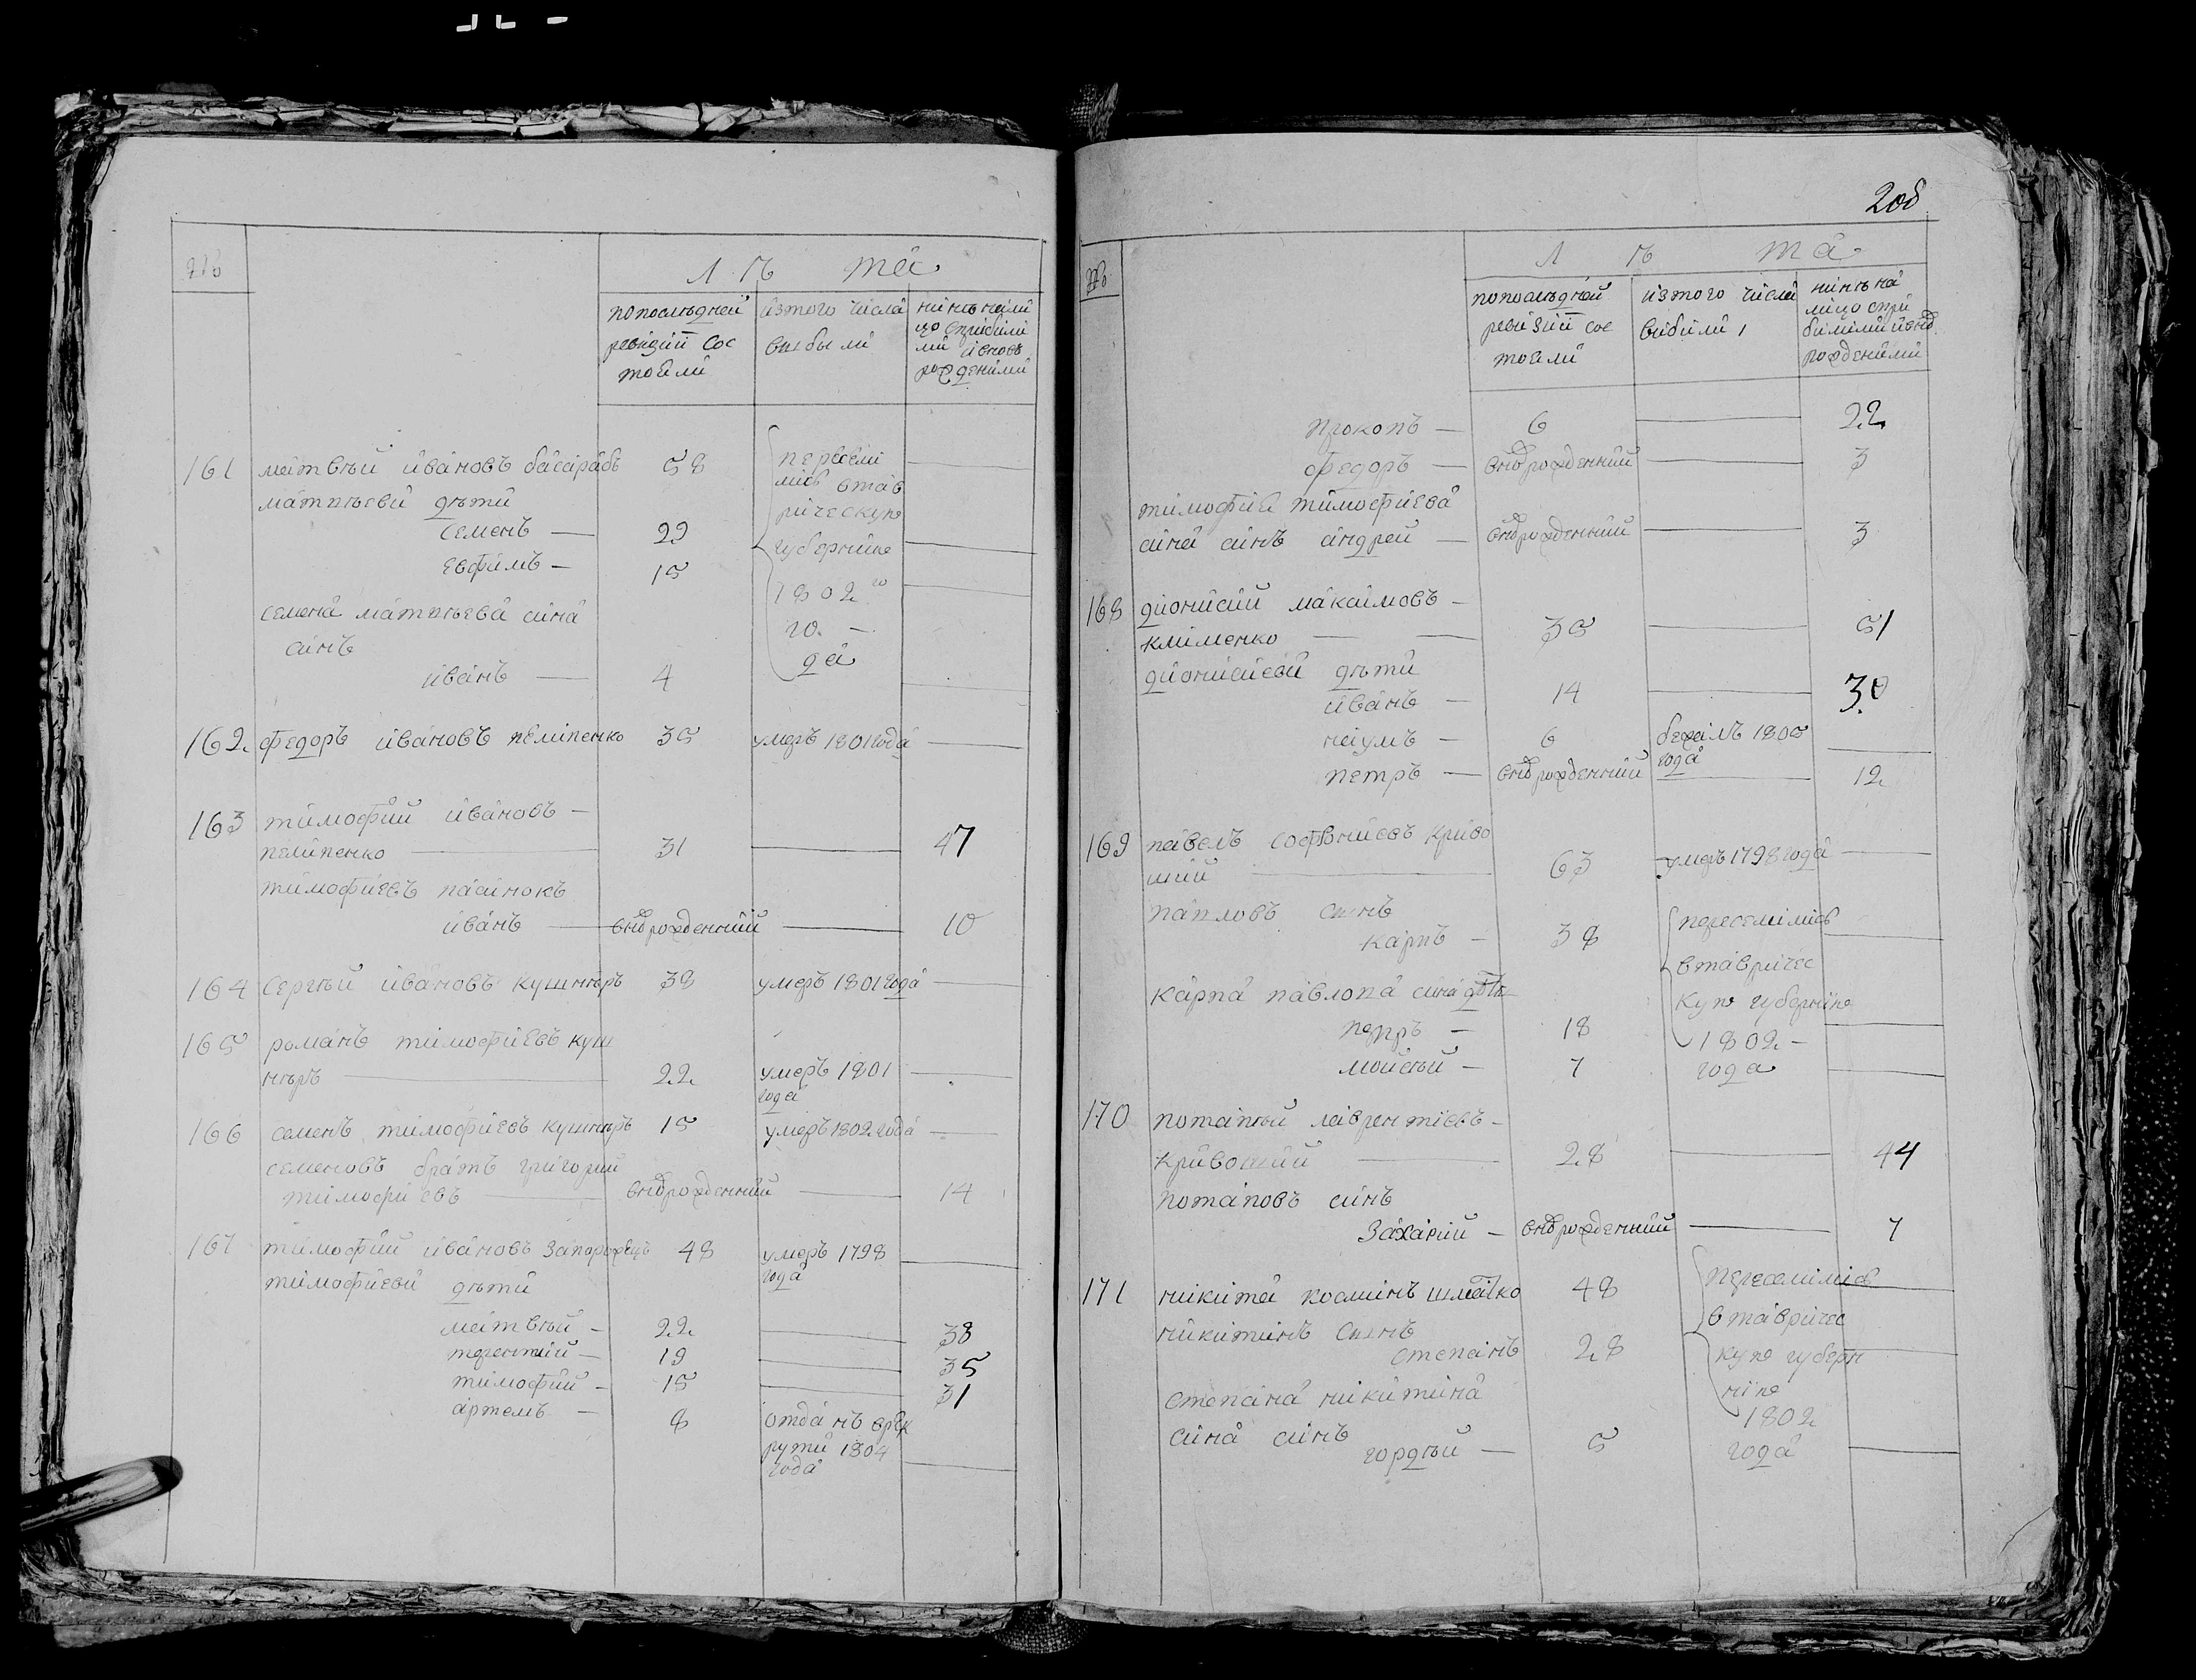 №
Лѣта
попослѣдней ревизіи состояли
изтого числа выбыли
нинѣ налицо сприбилими ивновь рожденими
161 матвѣй ивановъ басарабъ 58
переселились втаврическую губернию 1802го года
матвѣеви дѣти
семенъ — 29
евфимъ — 15
семена матвѣева сина
синъ
иванъ — 4
162 федоръ ивановъ пелипенко 35 умеръ 1801 года —
163 тимофий ивановъ —
пелипенко — 31 — 47
тимофиевъ пасинокъ
иванъ — внврожденний — 10
164 Сергѣй ивановъ кушнѣръ 38 умеръ 1801 года —
165 романъ тимофиевъ куш
нѣръ — 22 умеръ 1801 года —
166 семенъ тимофиевъ кушнѣръ 15 умеръ 1802 года —
семеновъ братъ григорий
тимофиевъ — внврожденний — 14
167 тимофий ивановъ запорожецъ 48 умеръ 1798 года —
тимофиеви дѣти
матвѣй — 22 — 38
терентий — 19 — 35
тимофий — 15 — 31
артемъ — 8 отданъ врекрути 1804 года —
206
№
Лѣта
попослѣдней ревизіи состояли
изтого числа вибили
нинѣ налицо сприбилими ивнвь рожденими
прокопъ — 6 — 22
федоръ — внврожденний — 3
тимофия тимофиева
сина синъ андрей — внврожденний — 3
168 дионисий максимовъ —
клименко — 35 — 51
дионисиеви дѣти
иванъ — 14 — 30
наумъ — 6 бежалъ 1805 года —
петръ — внврожденний — 12
169 павелъ софониевъ криво
ший — 63 умеръ 1798 года —
павловъ синъ
карпъ — 38
переселились втаврическую губернию 1802 — года
карпа павлова сина дѣти
петръ — 18
мойсѣй — 7
170 потапий лаврентиевъ —
кривоший — 28 — 44
потаповъ синъ
Захарий — внврожденний — 7
171 никита косминъ шматко 48
переселились втаврическую губернию 1802 года
никитинъ синъ
степанъ 28
степана никитина
сина синъ
гордѣй — 5